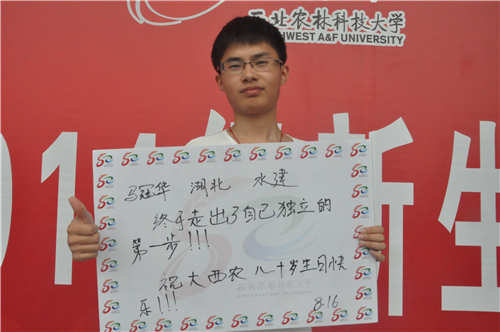 西北农林科技大学
NORTHWEST A&F UNIVERSITY
014 新生
马冠华 湖北 水建
终于走出了自己独立的
第一步!!!
祝大西农八十岁生日快
乐!!!
8.16
西北农林科技大学